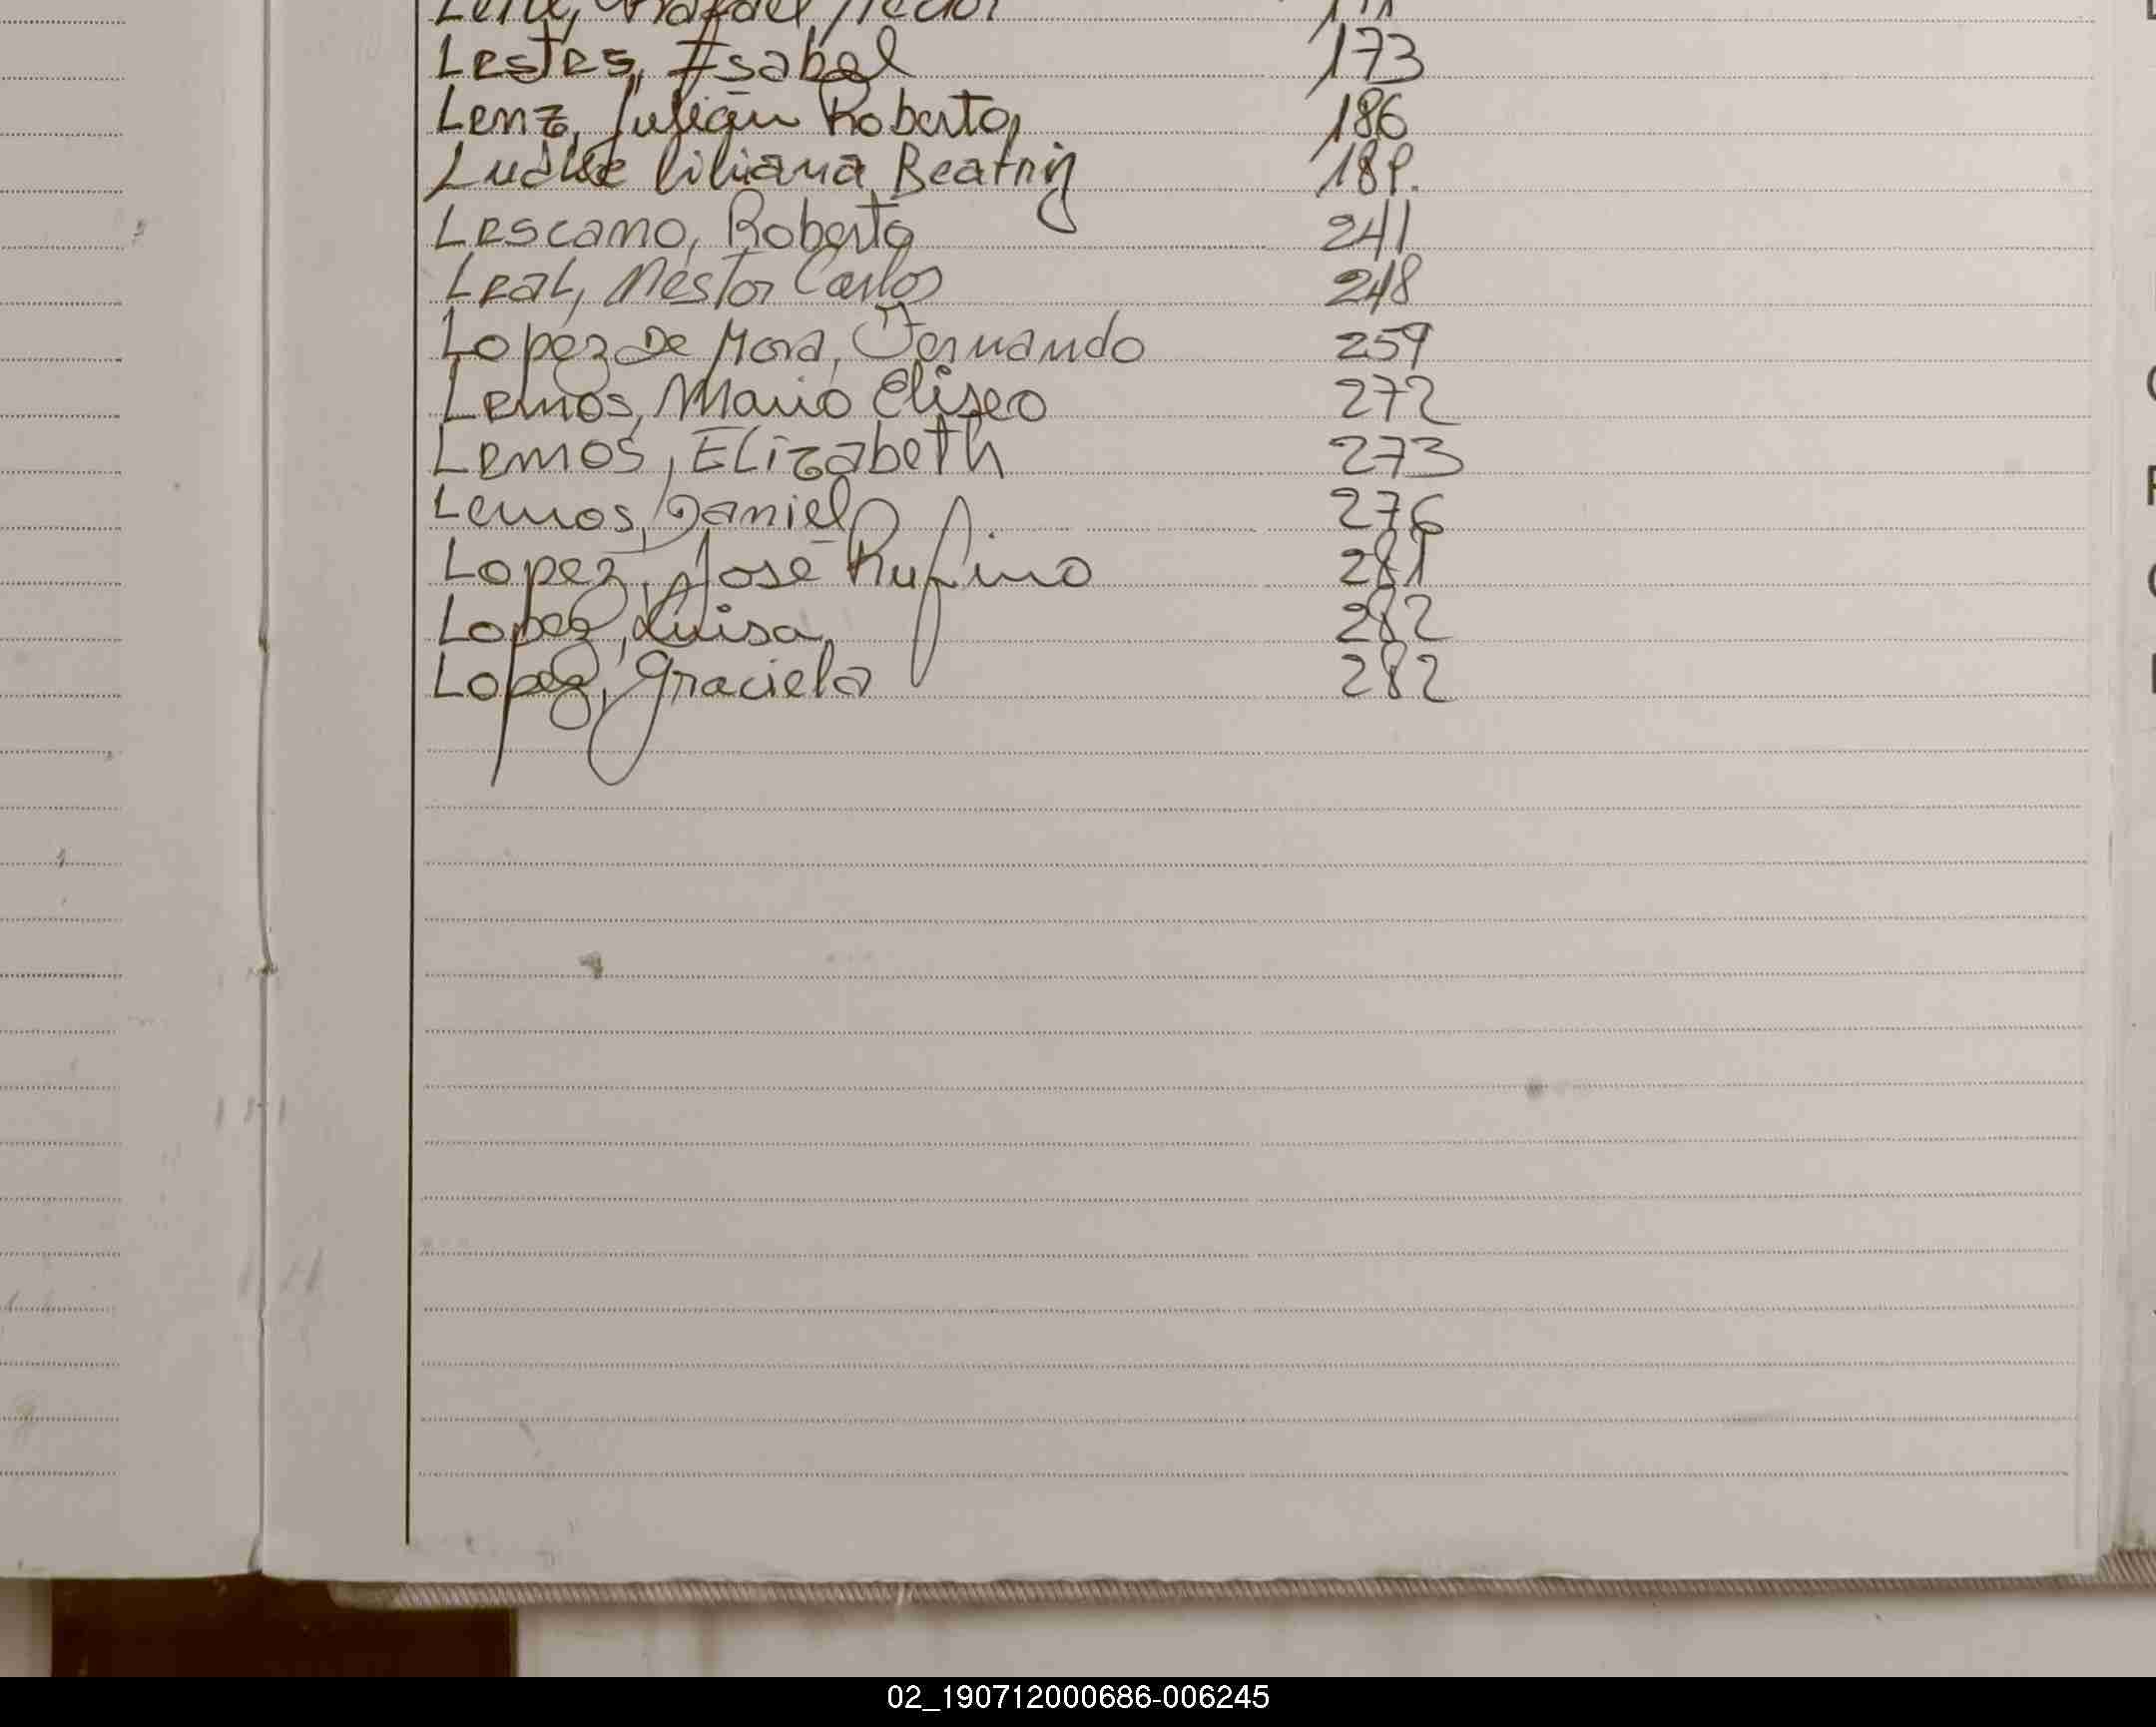 Rafael
Lestes, Isabel 173
Lenz, Julian Roberto, 186
Liliana Beatriz 189.
Lescano, Roberto 241
Leal, Nestor Carlos 248
Lopez De Mora, Fernando 259
Lemos, Mario Eliseo 272
Lemos, Elizabeth 273
Lemos, Daniel 276
Lopez, José Rufino 281
Lopez, Luisa, 282
Lopez, Graciela 282
02_190712000686-006245